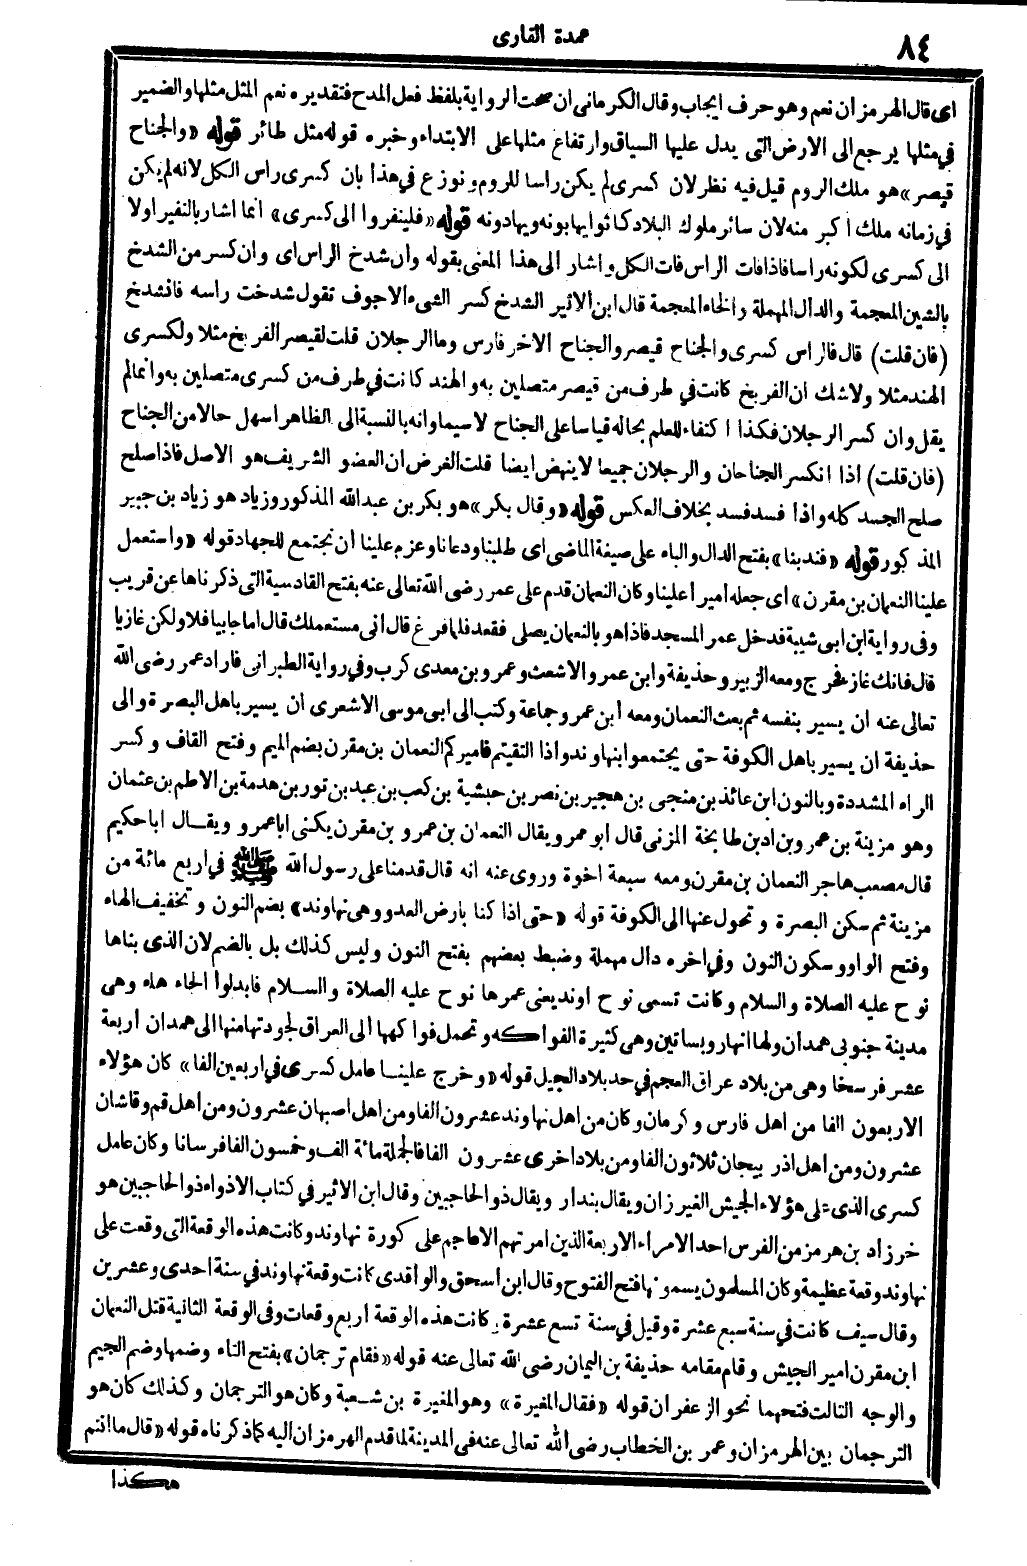 ٨٤
عمدة القارى
اى قال الهرمزان نعم وهو حرف ايجاب وقال الكرمانى ان صحت الرواية بلفظ فعل المدح فتقديره نعم المثل مثلها والضمير
فى مثلها يرجع الى الارض التى يدل عليها السياق وارتفاع مثلها على الابتداء وخبره قوله مثل طائر قوله «والجناح
قيصر» هو ملك الروم قيل فيه نظر لان كسرى لم يكن راسا للروم ونوزع فى هذا بان كسرى راس الكل لانه لم يكن
فى زمانه ملك أكبر منه لان سائر ملوك البلاد كانوا يهابونه ويهادونه قوله «فلينفروا الى كسرى» انما اشار بالنفير اولا
الى كسرى لكونه راسا فاذا فات الراس فات الكل واشار الى هذا المعنى بقوله وان شدخ الراس اى وان كسر من الشدخ
بالشين المعجمة والدال المهملة والخاء المعجمة قال ابن الاثير الشدخ كسر الشىء الاجوف تقول شدخت راسه فانشدخ
(فان قلت) قال فالراس كسرى والجناح قيصر والجناح الاخر فارس وما الرجلان قلت لقيصر الفرنج مثلا ولكسرى
الهند مثلا ولا شك ان الفرنج كانت فى طرف من قيصر متصلين به والهند كانت فى طرف من كسرى متصلين به وانما لم
يقل وان كسر الرجلان فكذا اكتفاء للعلم بحاله قياسا على الجناح لا سيما وانه بالنسبة الى الظاهر اسهل حالا من الجناح
(فان قلت) اذا انكسر الجناحان والرجلان جميعا لا ينهض ايضا قلت الغرض ان العضو الشريف هو الاصل فاذا صلح
صلح الجسد كله واذا فسد فسد بخلاف العكس قوله «وقال بكر» هو بكر بن عبد الله المذكور وزياد هو زياد بن جبير
المذكور قوله «فندبنا» بفتح الدال والباء على صيغة الماضى اى طلبنا ودعانا وعزم علينا ان نجتمع للجهاد قوله «واستعمل
علينا النعمان بن مقرن» اى جعله اميرا علينا وكان النعمان قدم على عمر رضى الله تعالى عنه بفتح القادسية التى ذكرناها عن قريب
وفى رواية ابن ابى شيبة فدخل عمر المسجد فاذا هو بالنعمان يصلى فقعد فلما فرغ قال انى مستعملك قال اما جابيا فلا ولكن غازيا
قال فانك غاز فخرج ومعه الزبير وحذيفة وابن عمر والاشعث وعمرو بن معدى كرب وفى رواية الطبرانى فاراد عمر رضى الله
تعالى عنه ان يسير بنفسه ثم بعث النعمان ومعه ابن عمر وجماعة وكتب الى ابى موسى الاشعرى ان يسير باهل البصرة والى
حذيفة ان يسير باهل الكوفة حتى يجتمعوا بنهاوند واذا التقيتم فاميركم النعمان بن مقرن بضم الميم وفتح القاف وكسر
الراء المشددة وبالنون ابن عائذ بن منجى بن هجير بن نصر بن حبشية بن كعب بن عبد بن ثور بن هدمة بن الاطم بن عثمان
وهو مزينة بن عمرو بن اد بن طابخة المزنى قال ابو عمر ويقال النعمان بن عمرو بن مقرن يكنى ابا عمرو ويقال ابا حكيم
قال مصعب هاجر النعمان بن مقرن ومعه سبعة اخوة وروى عنه انه قال قدمنا على رسول الله ﷺ فى اربع مائة من
مزينة ثم سكن البصرة وتحول عنها الى الكوفة قوله «حتى اذا كنا بارض العدو وهى نهاوند» بضم النون وتخفيف الهاء
وفتح الواو وسكون النون وفى اخره دال مهملة وضبط بعضهم بفتح النون وليس كذلك بل بالضم لان الذى بناها
نوح عليه الصلاة والسلام وكانت تسمى نوح اوند يعنى عمرها نوح عليه الصلاة والسلام فابدلوا الحاء هاء وهى
مدينة جنوبى همدان ولها انهار وبساتين وهى كثيرة الفواكه وتحمل فواكهها الى العراق لجودتها منها الى همدان اربعة
عشر فرسخا وهى من بلاد عراق العجم فى حد بلاد الجيل قوله «وخرج علينا عامل كسرى فى اربعين الفا» كان هؤلاء
الاربعون الفا من اهل فارس وكرمان وكان من اهل نهاوند عشرون الفا ومن اهل اصبهان عشرون ومن اهل قم وقاشان
عشرون ومن اهل اذربيجان ثلاثون الفا ومن بلاد اخرى عشرون الفا فالجملة مائة الف وخمسون الفا فرسانا وكان عامل
كسرى الذى على هؤلاء الجيش الغيرزان ويقال بندار ويقال ذو الحاجبين وقال ابن الاثير فى كتاب الاذواء ذو الحاجبين هو
خرزاد بن هرمز من الفرس احد الامراء الاربعة الذين امرتهم الاعاجم على كورة نهاوند وكانت هذه الوقعة التى وقعت على
نهاوند وقعة عظيمة وكان المسلمون يسمونها فتح الفتوح وقال ابن اسحق والواقدى كانت وقعة نهاوند فى سنة احدى وعشرين
وقال سيف كانت فى سنة سبع عشرة وقيل فى سنة تسع عشرة وكانت هذه الوقعة اربع وقعات وفى الوقعة الثانية قتل النعمان
ابن مقرن امير الجيش وقام مقامه حذيفة بن اليمان رضى الله تعالى عنه قوله «فقام ترجمان» بفتح التاء وضمها وضم الجيم
والوجه الثالث فتحهما نحو الزعفران قوله «فقال المغيرة» وهو المغيرة بن شعبة وكان هو الترجمان وكذلك كان هو
الترجمان بين الهرمزان وعمر بن الخطاب رضى الله تعالى عنه فى المدينة لما قدم الهرمزان اليه كما ذكرناه قوله «قال ما انتم
هكذا